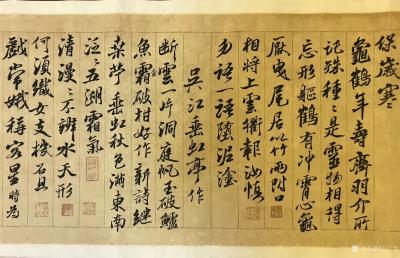 保歲寒
龜鶴年壽齊羽介所
託殊種種是靈物相得
忘形軀鶴有冲霄心龜
厭曳尾居以竹兩附口
相將上雲衢報汝慎
勿語一語墮泥塗
吳江垂虹亭作
斷雲一片洞庭帆玉破鱸
魚霜破柑好作新詩継
桒苧垂虹秋色滿東南
泛泛五湖霜氣
清漫漫不辨水天形
何須織女支機石且
戲常娥稱客星時為